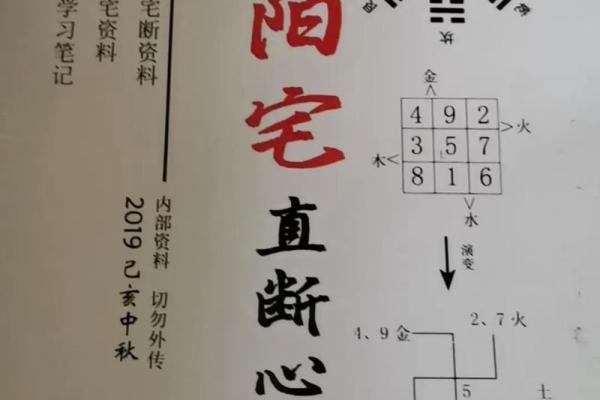 阳宅直断心
宅断资料
宅资料
学习笔记
内部资料 切勿外传
2019己亥中秋
坎
金
4 9 2
3 5 7
8 1 6
火
木
水
演变
4、9金
2、7火
5
土